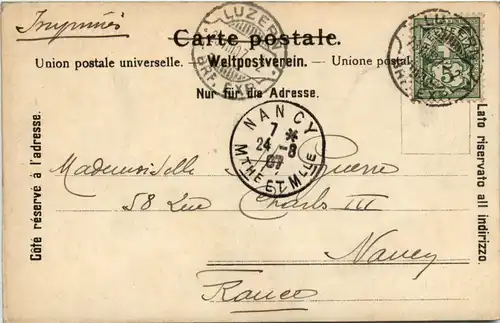 Imprimés
Carte postale.
Union postale universelle. — Weltpostverein. — Unione postal
Nur für die Adresse.
LUZERN
BRF. EXP.
LUZERN
BRF.
5
NANCY
7 *
24 - 8
07
MTHE ET MLLE
Côté réservé à l'adresse.
Lato riservato all indirizzo.
Mademoiselle Guerre
58 Rue Charles III
Nancy
France